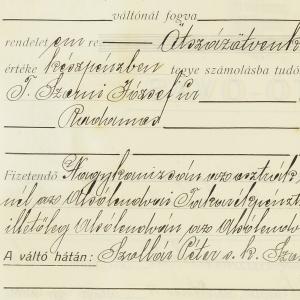 váltónál fogva
rendelet em re Ötszázötvenk
értéke készpénzben tegye számolásba tudó
T. Szerni József úr
Radamos
Fizetendő Nagykanizsán az osztrák
nél az Alsólendvai Takarékpénzt
illetőleg Alsólendván az Alsólend
A váltó hátán: Szollár Péter s. k. Sza